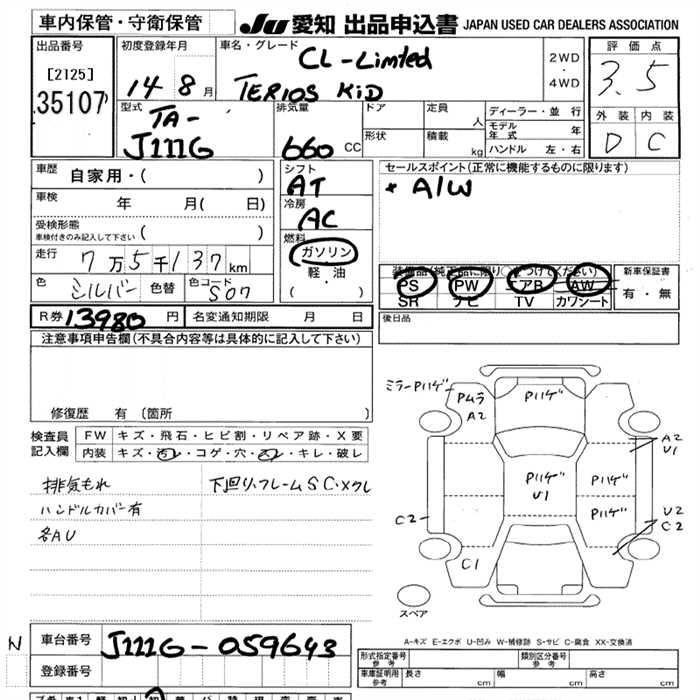 車内保管・守衛保管
JU 愛知 出品申込書 JAPAN USED CAR DEALERS ASSOCIATION
出品番号
[2125]
35107
初度登録年月
14 8 月
車名・グレード
CL-Limted
TERIOS KiD
2WD
・
4WD
評価点
3.5
外装 内装
D C
型式
TA-
J111G
排気量
660 CC
ドア
定員
人
形状
積載
kg
ディーラー・並行
モデル年式 年
ハンドル 左・右
車歴
自家用・( )
車検
年 月( 日)
受検形態
車検付きのみ記入して下さい ( )
走行
7万5千137 km
色
シルバー
色替
色コード
S07
シフト
AT
冷房
AC
燃料
ガソリン
軽・油
( )
セールスポイント(正常に機能するものに限ります)
* A/W
装備品(純正品に限り○をつけてください)
PS PW エアB AW
SR ナビ TV カワシート
新車保証書
有・無
R券 13980 円
名変通知期限 月 日
後日品
注意事項申告欄(不具合内容等は具体的に記入して下さい)
修復歴 有 (箇所
検査員
記入欄
FW キズ・飛石・ヒビ割・リペア跡・X要
内装 キズ・汚レ・コゲ・穴・スレ・キレ・破レ
排気もれ
下回リ、フレームSC・メクレ
ハンドルカバー有
各AU
ミラーPハゲ
Pムラ
A2
Pハゲ
A2
U1
Pハゲ
U1
Pハゲ
Pハゲ
C2
U2
C2
C1
スペア
A-キズ E-エクボ U-凹み W-補修跡 S-サビ C-腐食 XX-交換済
N
車台番号
J111G-059643
登録番号
形式指定番号
参考
類別区分番号
参考
車庫証明用
参考
長さ cm
幅 cm
高さ cm